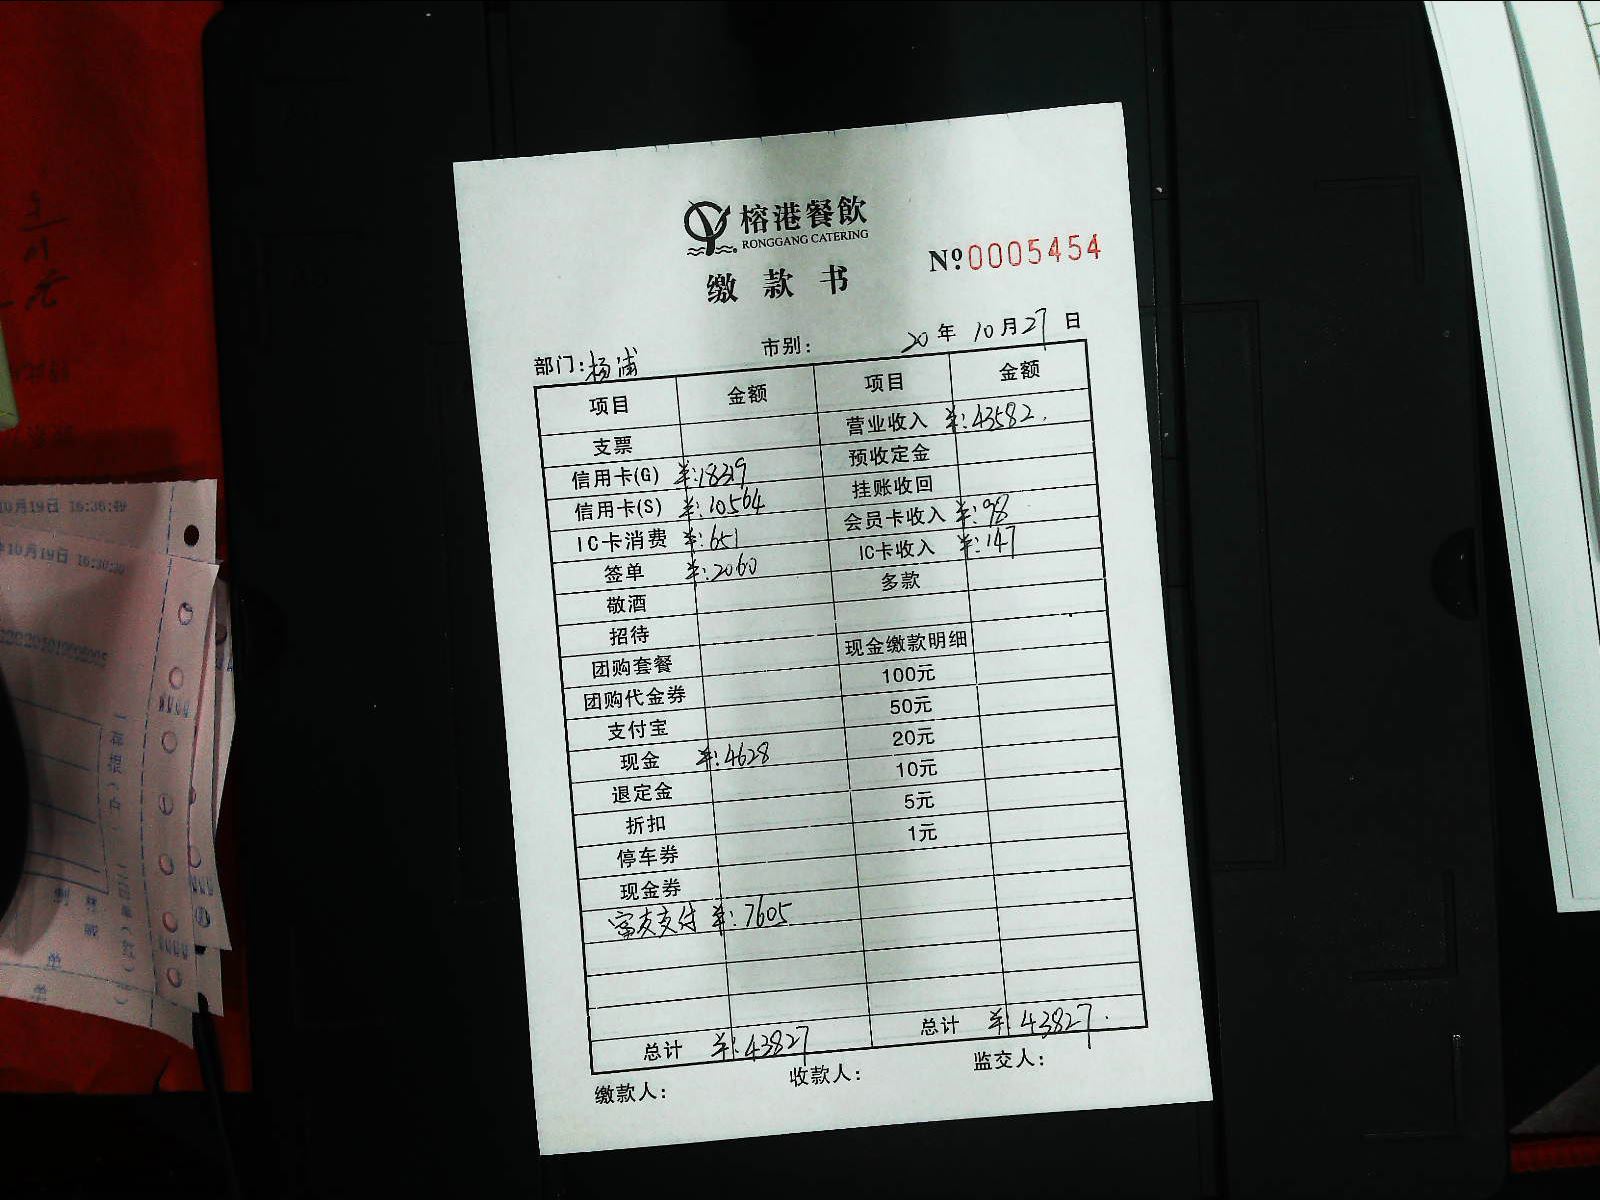 榕港餐飲
RONGGANG CATERING
缴款书
Nº0005454
部门:杨浦 市别: 20年 10月27日
项目 金额 项目 金额
支票 营业收入 ¥:43582.
信用卡(G) ¥:18319 预收定金
信用卡(S) ¥:10564 挂账收回
IC卡消费 ¥:651 会员卡收入 ¥:98
签单 ¥:2060 IC卡收入 ¥:147
敬酒 多款
招待
团购套餐 现金缴款明细
团购代金券 100元
支付宝 50元
现金 ¥:4628 20元
退定金 10元
折扣 5元
停车券 1元
现金券
富友支付 ¥:7605
总计 ¥:43827 总计 ¥:43827.
缴款人: 收款人: 监交人:
10月19日 16:36:49
年10月19日